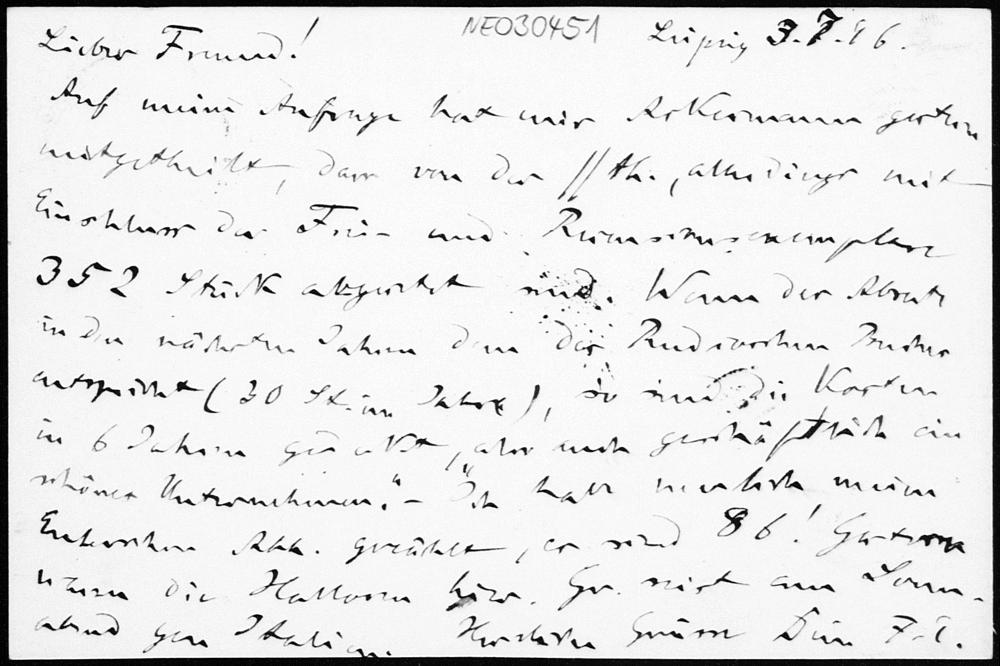 NEO30451
Lieber Freund! Leipzig 3.7.96.
Auf meine Anfrage hat mir Ackermann gestern
mitgetheilt, dass von der //th., allerdings mit
Einschluss der Frei- und Recensionsexemplare
352 Stück abgesetzt sind. Wenn der Absatz
in den nächsten Jahren dem des Rudioschen Buches
entspricht (30 St. im Jahre), so sind die Kosten
in 6 Jahren gedeckt, also auch geschäftlich ein
schönes Unternehmen." - Ich habe neulich meine
Eulerschen Abh. gezählt, es sind 86! Gestern
waren die Hallorum hier. Gr. reist am Sonn-
abend gen Italien. Herzliche Grüsse Dein F.E.